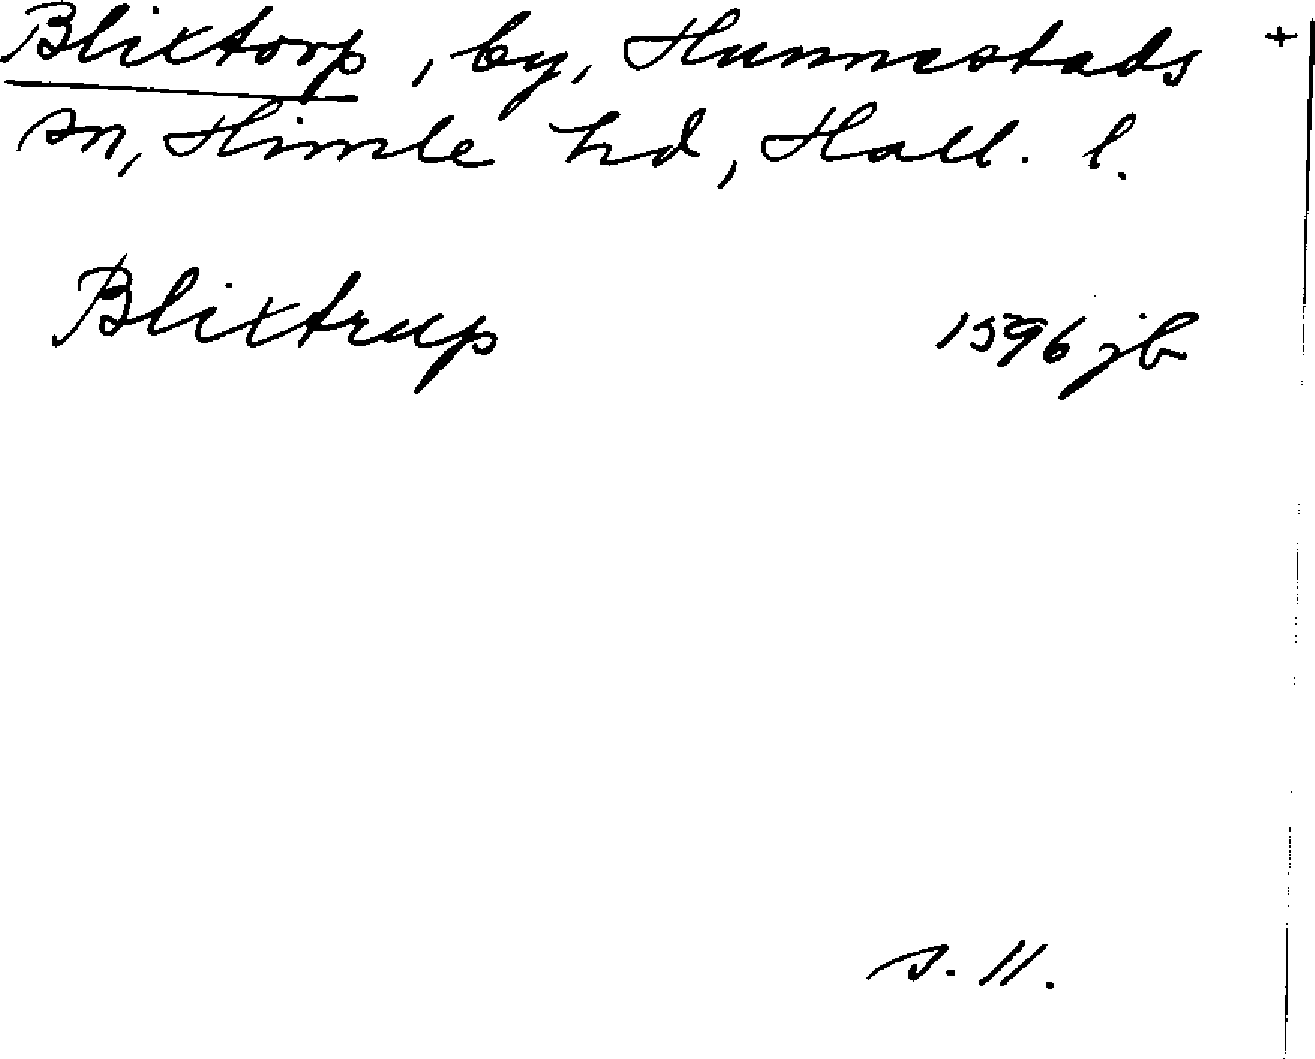 Blixtorp, by, Hunnestads +
sn, Himle hd, Hall. l.
Blixtrup 1596 jb
s. 11.